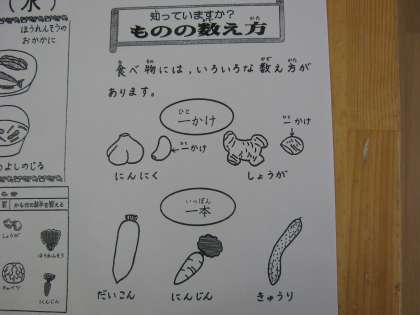 （水）
ほうれんそうの
おかかに
よしのじる
しょうが
ほうれんそう
にんじん
知っていますか？
ものの数え方
食べ物には、いろいろな数え方が
あります。
一かけ
一かけ
一かけ
にんにく
しょうが
一本
だいこん
にんじん
きゅうり